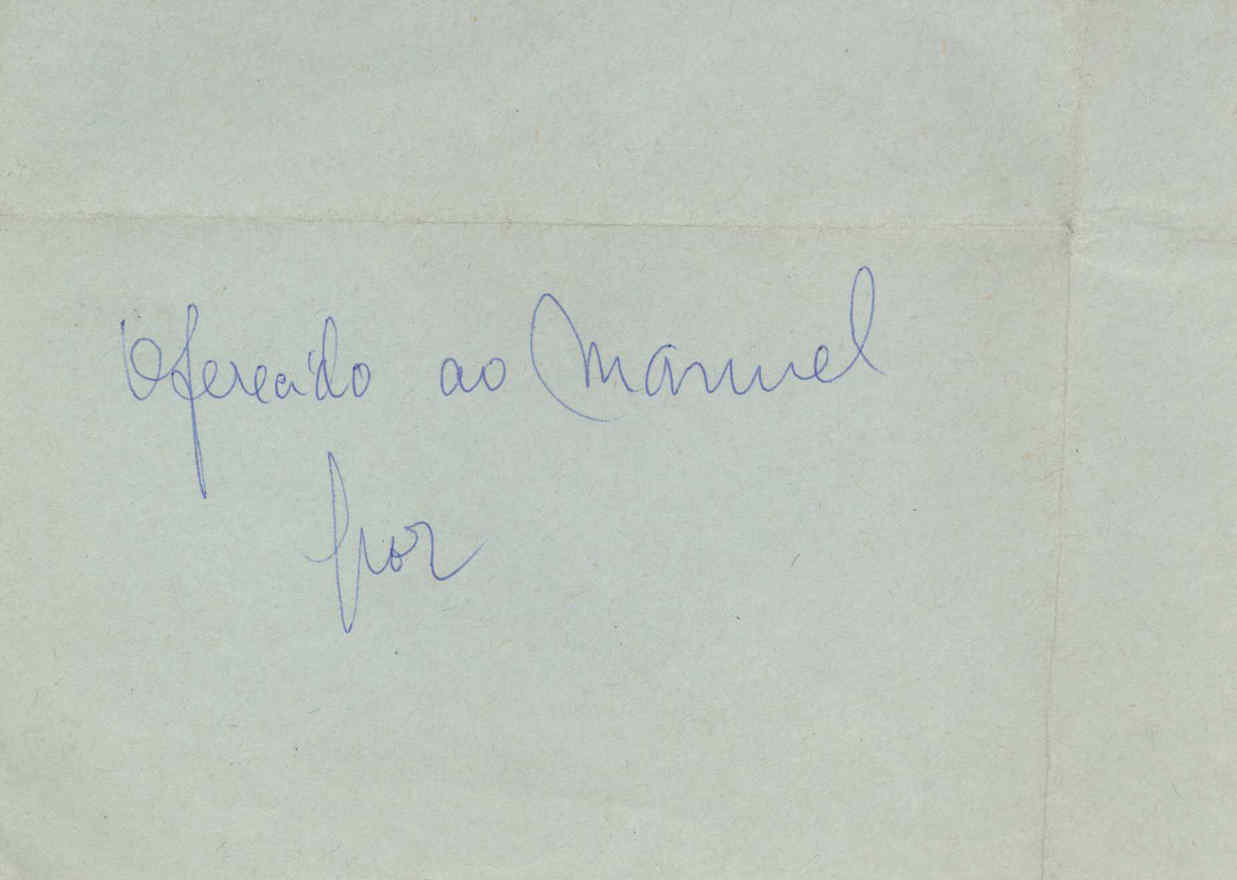 Oferecido ao Manuel
por